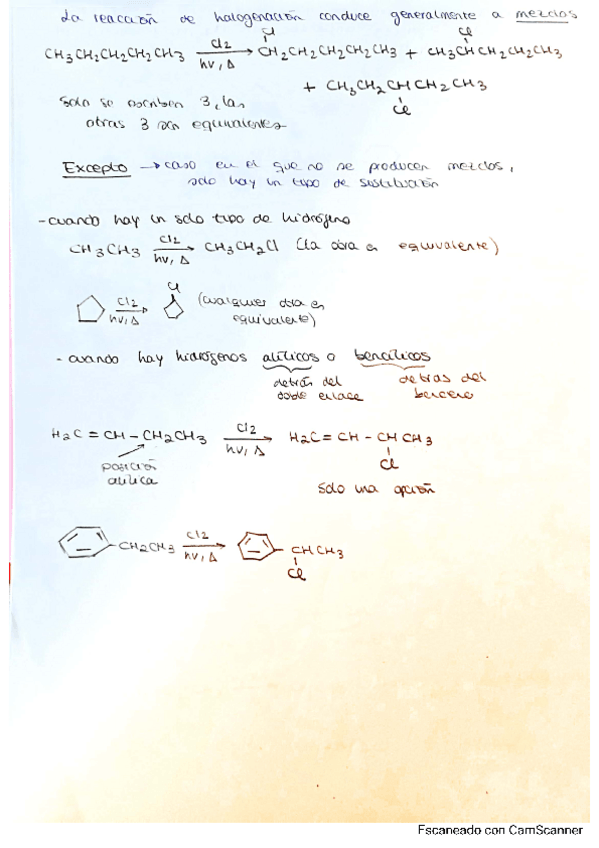 La reacción de halogenación conduce generalmente a mezclas
CH3CH2CH2CH2CH3 Cl2 hν, Δ → Cl CH2CH2CH2CH2CH3 + Cl CH3CHCH2CH2CH3
+ CH3CH2CHCH2CH3
Cl
Solo se escriben 3, las
otras 3 son equivalentes
Excepto → caso en el que no se producen mezclas,
solo hay un tipo de sustitución
- cuando hay un solo tipo de hidrógeno
CH3CH3 Cl2 hν, Δ → CH3CH2Cl (la otra es equivalente)
Cl
Cl2 hν, Δ → (cualquier otra es
equivalente)
- cuando hay hidrógenos alílicos o bencílicos
detrás del
doble enlace
detras del
benceno
H2C = CH - CH2CH3 Cl2 hν, Δ → H2C = CH - CHCH3
Cl
posición
alílica
solo una opción
-CH2CH3 Cl2 hν, Δ → -CHCH3
Cl
Escaneado con CamScanner